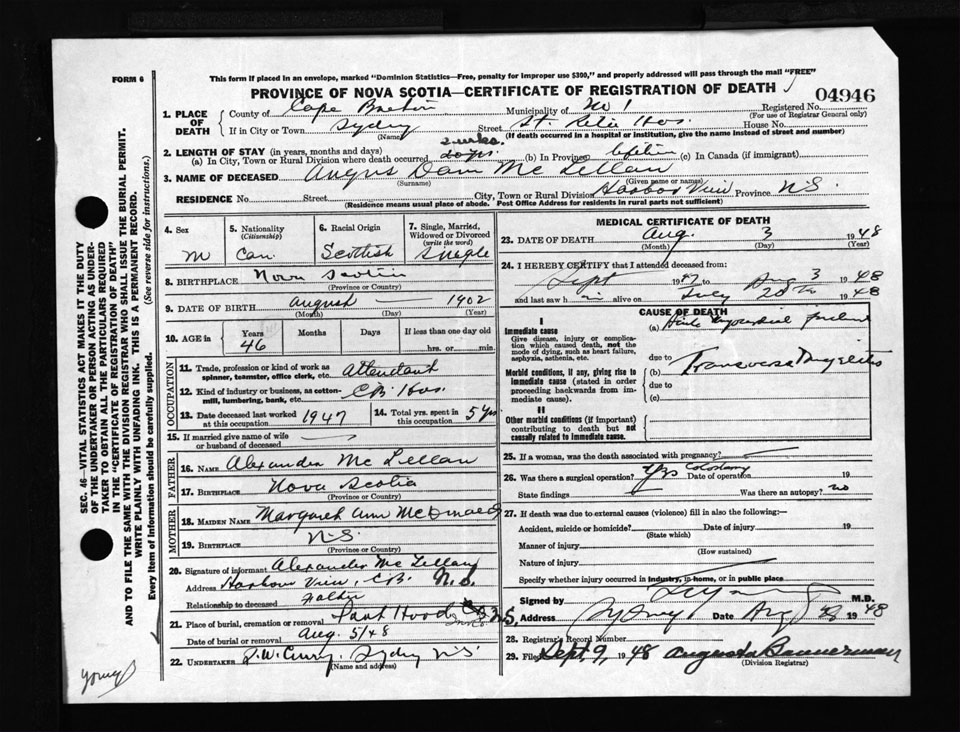 FORM 6
This form if placed in an envelope, marked "Dominion Statistics—Free, penalty for improper use $300," and properly addressed will pass through the mail "FREE"
PROVINCE OF NOVA SCOTIA—CERTIFICATE OF REGISTRATION OF DEATH
04946
1. PLACE OF DEATH County of Cape Breton Municipality of No 1 Registered No.
(For use of Registrar General only)
If in City or Town Sydney Street St. Hos. House No.
(Name) (If death occurred in a hospital or institution, give the name instead of street and number)
2. LENGTH OF STAY (in years, months and days) 2 wks.
(a) In City, Town or Rural Division where death occurred days (b) In Province Lifetime (c) In Canada (if immigrant)
3. NAME OF DECEASED Angus Dan McLellan
(Surname) (Given name or names)
RESIDENCE No. Street City, Town or Rural Division Harbor View Province N.S.
(Residence means usual place of abode. Post Office Address for residents in rural parts not sufficient)
4. Sex 5. Nationality (Citizenship) 6. Racial Origin 7. Single, Married, Widowed or Divorced (write the word)
M Can. Scottish Single
8. BIRTHPLACE Nova Scotia
(Province or Country)
9. DATE OF BIRTH August 1902
(Month) (Day) (Year)
10. AGE in Years Months Days If less than one day old
46 hrs. or min.
OCCUPATION
11. Trade, profession or kind of work as spinner, teamster, office clerk, etc. Attendant
12. Kind of industry or business, as cotton-mill, lumbering, bank, etc. C.B. Hos.
13. Date deceased last worked at this occupation 1947 14. Total yrs. spent in this occupation 5 yrs
15. If married give name of wife or husband of deceased
FATHER
16. NAME Alexander McLellan
17. BIRTHPLACE Nova Scotia
(Province or Country)
MOTHER
18. MAIDEN NAME Margaret Ann
19. BIRTHPLACE N.S.
(Province or Country)
20. Signature of informant Alexander McLellan
Address Harbour View, C.B. N.S.
Relationship to deceased Father
21. Place of burial, cremation or removal Port Hood N.S.
Date of burial or removal Aug. 5/48
22. UNDERTAKER Sydney N.S.
(Name and address)
MEDICAL CERTIFICATE OF DEATH
23. DATE OF DEATH Aug. 3 1948
(Month) (Day) (Year)
24. I HEREBY CERTIFY that I attended deceased from:
Sept 1947 to Aug 3 1948
and last saw him alive on July 28th 1948
CAUSE OF DEATH
I
Immediate cause
Give disease, injury or complication which caused death, not the mode of dying, such as heart failure, asphyxia, asthenia, etc.
(a) Acute myocardial failure
due to
Morbid conditions, if any, giving rise to immediate cause (stated in order proceeding backwards from immediate cause).
(b) Transverse Myelitis
due to
(c)
II
Other morbid conditions (if important) contributing to death but not causally related to immediate cause.
25. If a woman, was the death associated with pregnancy?
26. Was there a surgical operation? Yes Colostomy Date of operation 19
State findings Was there an autopsy? no
27. If death was due to external causes (violence) fill in also the following:—
Accident, suicide or homicide? Date of injury 19
(State which)
Manner of injury
(How sustained)
Nature of injury
Specify whether injury occurred in industry, in home, or in public place
Signed by M.D.
Address Sydney Date Aug 1948
28. Registrar's Record Number
29. Filed Sept. 9, 1948 Augusta Bannerman
(Division Registrar)
SEC. 46—VITAL STATISTICS ACT MAKES IT THE DUTY
OF THE UNDERTAKER OR PERSON ACTING AS UNDER-
TAKER TO OBTAIN ALL THE PARTICULARS REQUIRED
IN THE "CERTIFICATE OF REGISTRATION OF DEATH"
AND TO FILE THE SAME WITH THE DIVISION REGISTRAR WHO SHALL ISSUE THE BURIAL PERMIT.
WRITE PLAINLY WITH UNFADING INK. THIS IS A PERMANENT RECORD.
Every item of information should be carefully supplied. (See reverse side for instructions.)